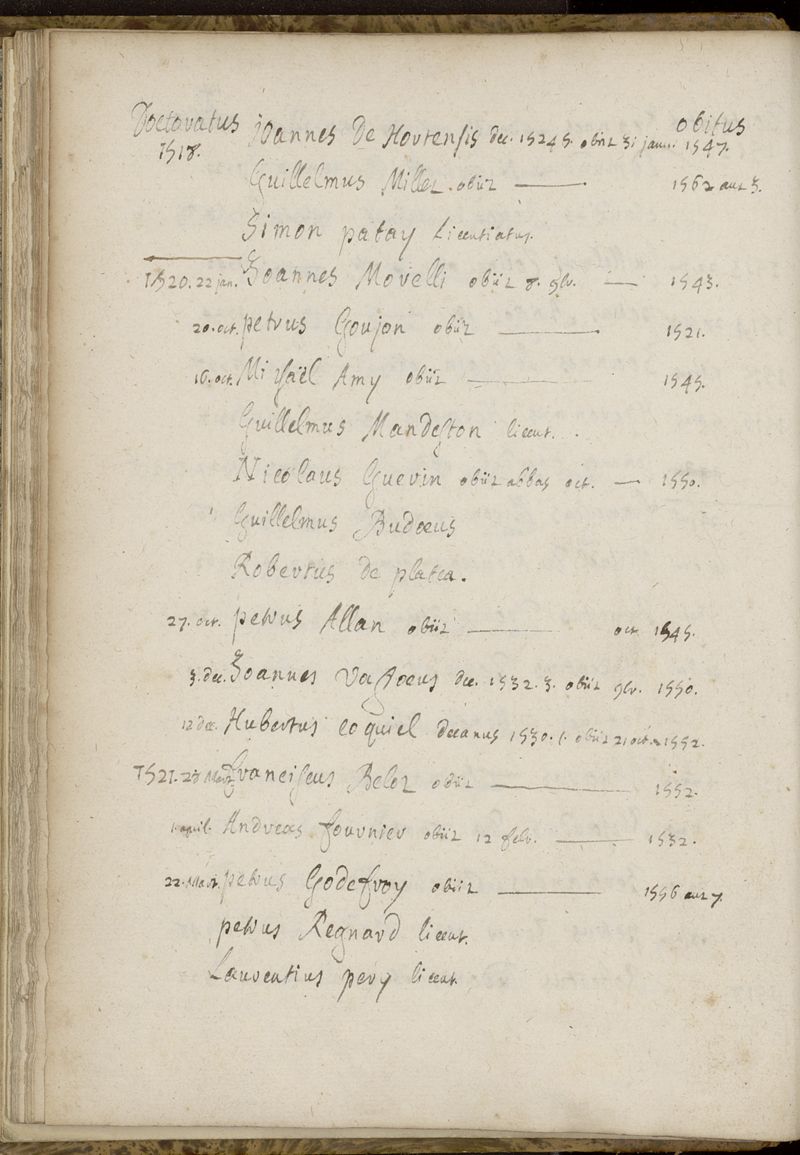 Doctoratus obitus
1518. Joannes De Hortensis dec. 1524 5. obiit 31 janu. 1547.
Guillelmus Millet obiit — 1562 aut 3.
Simon patay Licentiatus.
1520. 22 jan. Joannes Morelli obiit 8. 9br. — 1543.
20. oct. petrus Goujon obiit — 1521.
16. oct. Michaël Amy obiit — 1545.
Guillelmus Mandeston licent.
Nicolaus Guerin obiit abbas oct. — 1550.
Guillelmus Budœus
Robertus de platea.
27. oct. petrus Allan obiit — oct. 1545.
3. dec. Joannes Vassœus dec. 1532. 3. obiit 9br. 1550.
12 dec. Hubertus coquiel decanus 1530. 1. obiit 21 oct. 1552.
1521. 28 Mart. Franciscus Belot obiit — 1552.
1. april. Andreas fournier obiit 12 febr. — 1532.
22. Mart. petrus Godefroy obiit — 1556 aut 7.
petrus Regnard licent.
Laurentius pery licent.